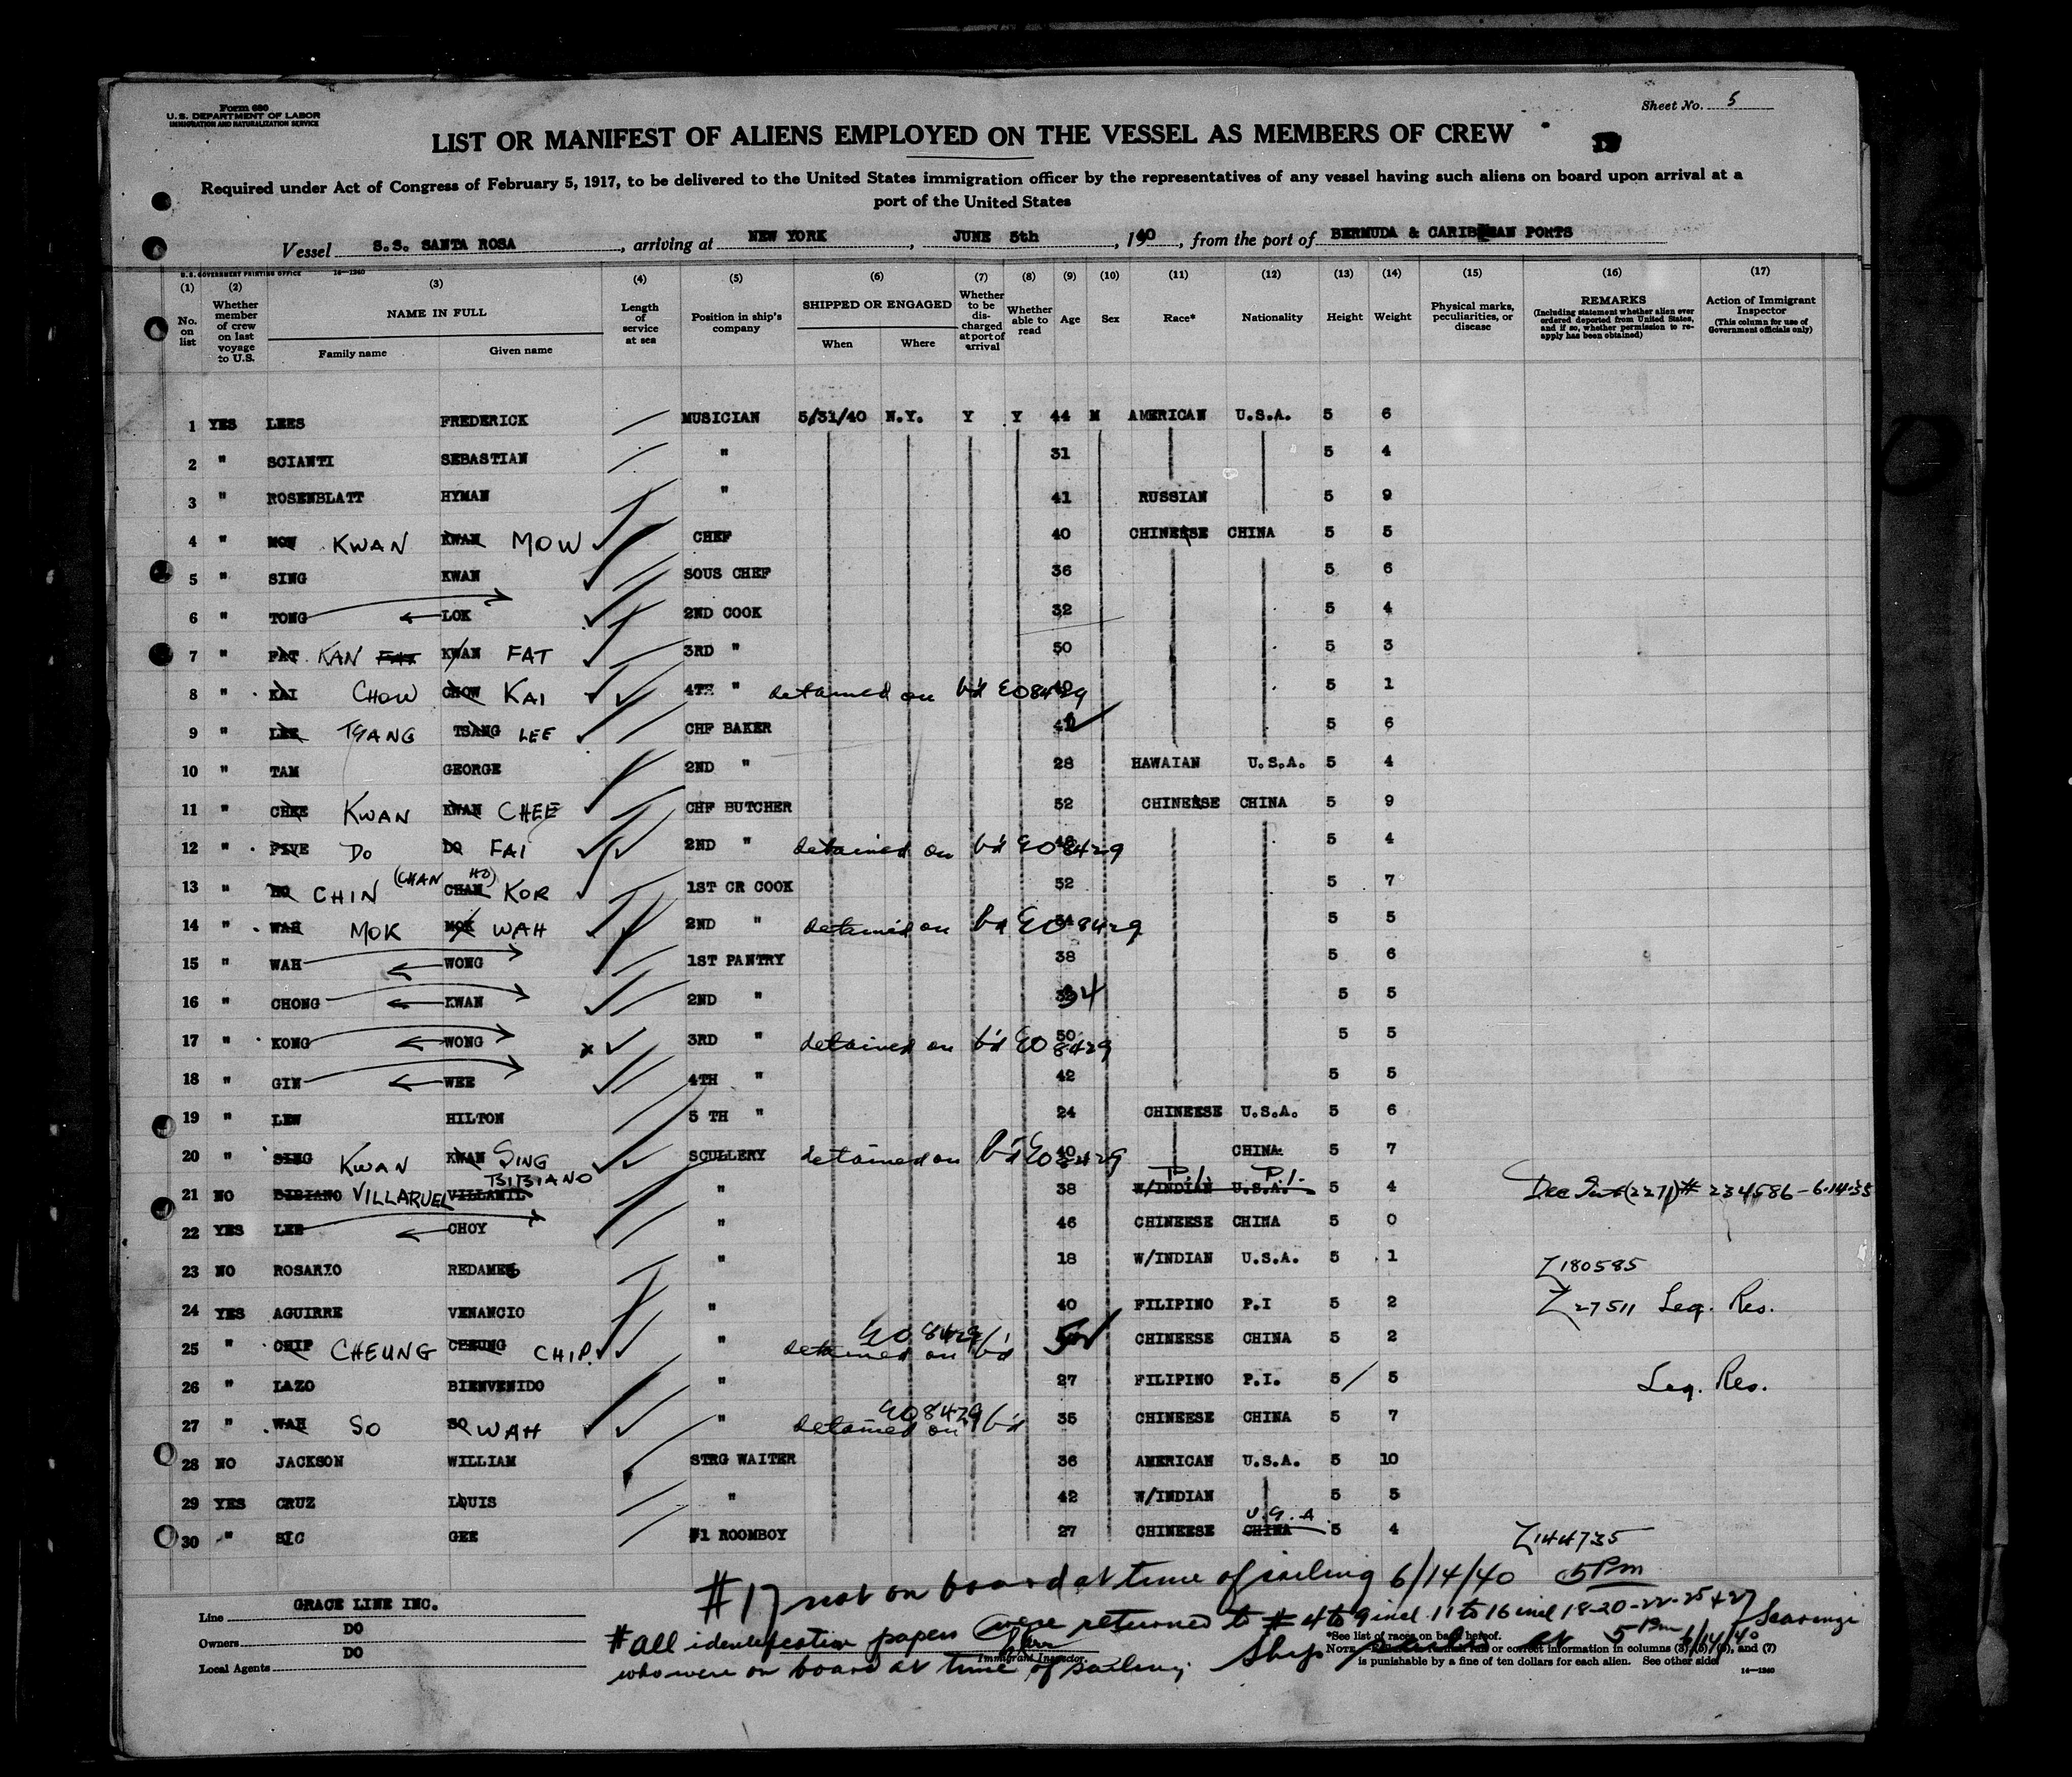 Form 680
U.S. DEPARTMENT OF LABOR
IMMIGRATION AND NATURALIZATION SERVICE
Sheet No. 5
LIST OR MANIFEST OF ALIENS EMPLOYED ON THE VESSEL AS MEMBERS OF CREW
Required under Act of Congress of February 5, 1917, to be delivered to the United States immigration officer by the representatives of any vessel having such aliens on board upon arrival at a
port of the United States
Vessel S.S. SANTA ROSA, arriving at NEW YORK, JUNE 5th, 1940, from the port of BERMUDA & CARIBBEAN PORTS
U.S. GOVERNMENT PRINTING OFFICE 14—1240
(1) No. on list
(2) Whether member of crew on last voyage to U.S.
(3) NAME IN FULL Family name Given name
(4) Length of service at sea
(5) Position in ship's company
(6) SHIPPED OR ENGAGED When Where
(7) Whether to be discharged at port of arrival
(8) Whether able to read
(9) Age
(10) Sex
(11) Race*
(12) Nationality
(13) Height
(14) Weight
(15) Physical marks, peculiarities, or disease
(16) REMARKS (Including statement whether alien ever ordered deported from United States, and if so, whether permission to re-apply has been obtained)
(17) Action of Immigrant Inspector (This column for use of Government officials only)
1 YES LEES FREDERICK MUSICIAN 5/31/40 N.Y. Y Y 44 M AMERICAN U.S.A. 5 6
2 " SCIANTI SEBASTIAN " 31 5 4
3 " ROSENBLATT HYMAN " 41 RUSSIAN 5 9
4 " MOW KWAN KWAN MOW CHEF 40 CHINEESE CHINA 5 5
5 " SING KWAN SOUS CHEF 36 5 6
6 " TONG LOK 2ND COOK 32 5 4
7 " FAT KAN FAT KWAN FAT 3RD " 50 5 3
8 " KAI CHOW CHOW KAI 4TH " detained on b'd E08429 5 1
9 " LEE TSANG TSANG LEE CHF BAKER 5 6
10 " TAM GEORGE 2ND " 28 HAWAIAN U.S.A. 5 4
11 " CHEE KWAN KWAN CHEE CHF BUTCHER 52 CHINEESE CHINA 5 9
12 " FIVE DO DO FAI 2ND " detained on b'd E08429 5 4
13 " HO CHIN (CHAN HO) CHAN KOR 1ST CR COOK 52 5 7
14 " WAH MOK MOK WAH 2ND " detained on bd E08429 5 5
15 " WAH WONG 1ST PANTRY 38 5 6
16 " CHONG KWAN 2ND " 34 5 5
17 " KONG WONG x 3RD " detained on b'd E08429 50 5 5
18 " GIN WEE 4TH " 42 5 5
19 " LEW HILTON 5 TH " 24 CHINEESE U.S.A. 5 6
20 " SING KWAN KWAN SING SCULLERY detained on b'd E08429 40 CHINA 5 7
21 NO BIBIANO VILLARUEL VILLAMIL BIBIANO " 38 W/INDIAN P.I. U.S.A. P.I. 5 4 # 234586 - 6-14-35
22 YES LEE CHOY " 46 CHINEESE CHINA 5 0
23 NO ROSARIO REDAMES " 18 W/INDIAN U.S.A. 5 1 Z180585
24 YES AGUIRRE VENANCIO " 40 FILIPINO P.I 5 2 Z27511 Leg. Res.
25 " CHIP CHEUNG CHEUNG CHIP. " E08429 detained on b'd CHINEESE CHINA 5 2
26 " LAZO BIENVENIDO " 27 FILIPINO P.I. 5 5 Leg. Res.
27 " WAH SO SO WAH " E08429 detained on b'd 35 CHINEESE CHINA 5 7
28 NO JACKSON WILLIAM STRG WAITER 36 AMERICAN U.S.A. 5 10
29 YES CRUZ LOUIS " 42 W/INDIAN 5 5
30 " SIC GEE #1 ROOMBOY 27 CHINEESE CHINA U.S.A 5 4 Z144735
#17 not on board at time of sailing 6/14/40 5Pm
# all identification papers were returned to # 4 to 9 incl. 11 to 16 incl 18-20-22-25 & 27
who were on board at time of sailing. Ship sailed at 5 Pm 6/14/40
Line GRACE LINE INC.
Owners DO
Local Agents DO
Immigrant Inspector.
*See list of races on back hereof.
NOTE or correct information in columns (3), (5), (6), and (7)
is punishable by a fine of ten dollars for each alien. See other side.
14—1240